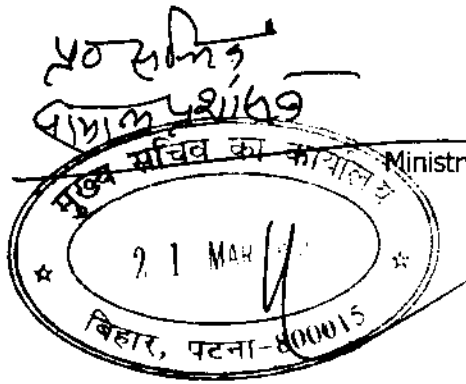 प्र० सचिव
सामान्य प्रशासन
मुख्य सचिव का कार्यालय
Ministr
21 MAR
बिहार, पटना-800015